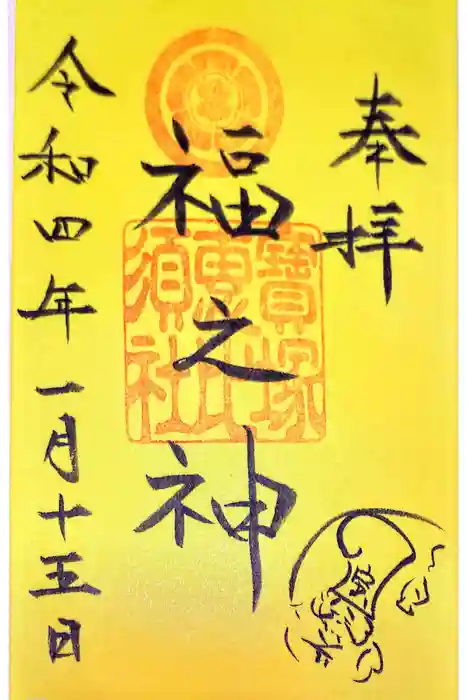 奉拝
福之神
寶塚
惠比
須社
令和四年一月十五日